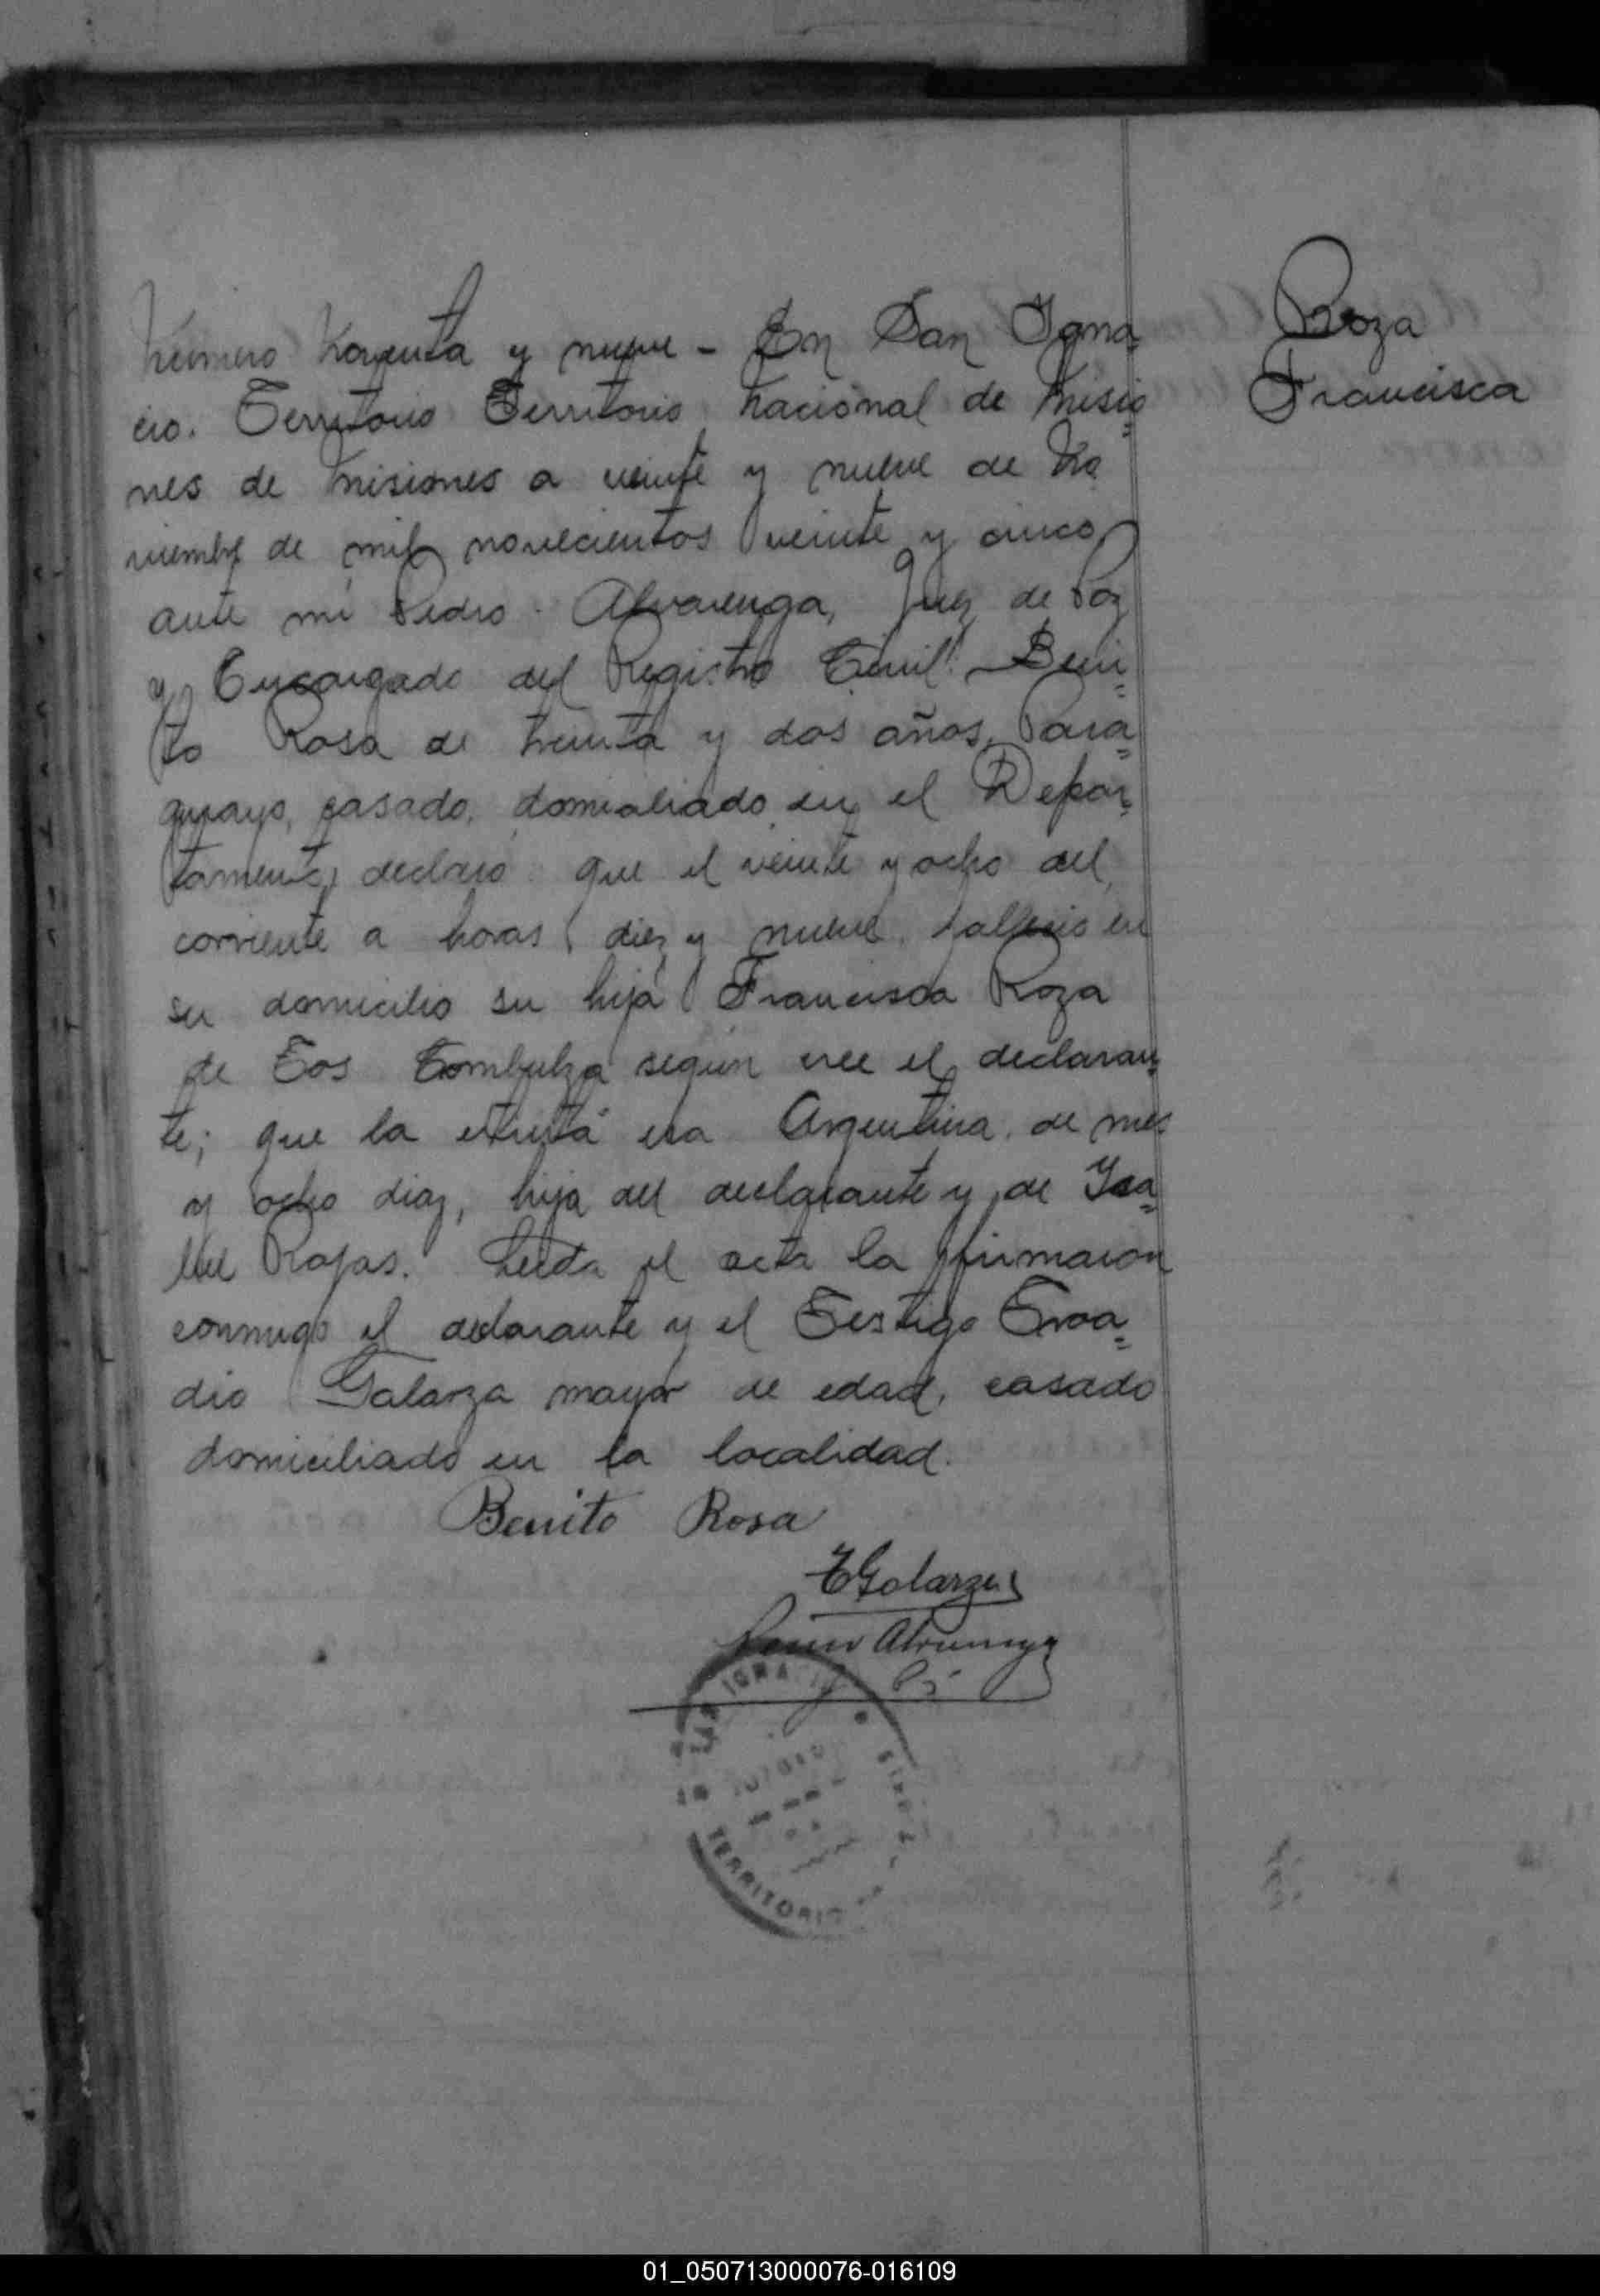 Roza
Francisca
Número Noventa y nueve - En San Igna=
cio. Territorio Territorio nacional de Misio=
nes de Misiones a veinte y nueve de No
viembre de mil novecientos veinte y cinco
ante mi Pedro Alvarenga, Juez de Paz
y Encargado del Registro Civil. Beni=
to Rosa de treinta y dos años, Para=
guayo, casado, domiciliado en el Depar=
tamento, declaro que el veinte y ocho del
corriente a horas diez y nueve, fallecio en
su domicilio su hija Francisca Roza
de Tos Combulza según cree el declaran=
te; que la extinta era Argentina, de mes
y ocho diaz, hija del declarante y de Isa=
bel Rojas. Leida el acta la firmaron
conmigo el declarante y el Testigo Evoa=
dio Galarza mayor de edad, casado
domiciliado en la localidad.
Benito Rosa
EGalarza
Alvarenga
SAN IGNACIO
TERRITORIO
01_050713000076-016109